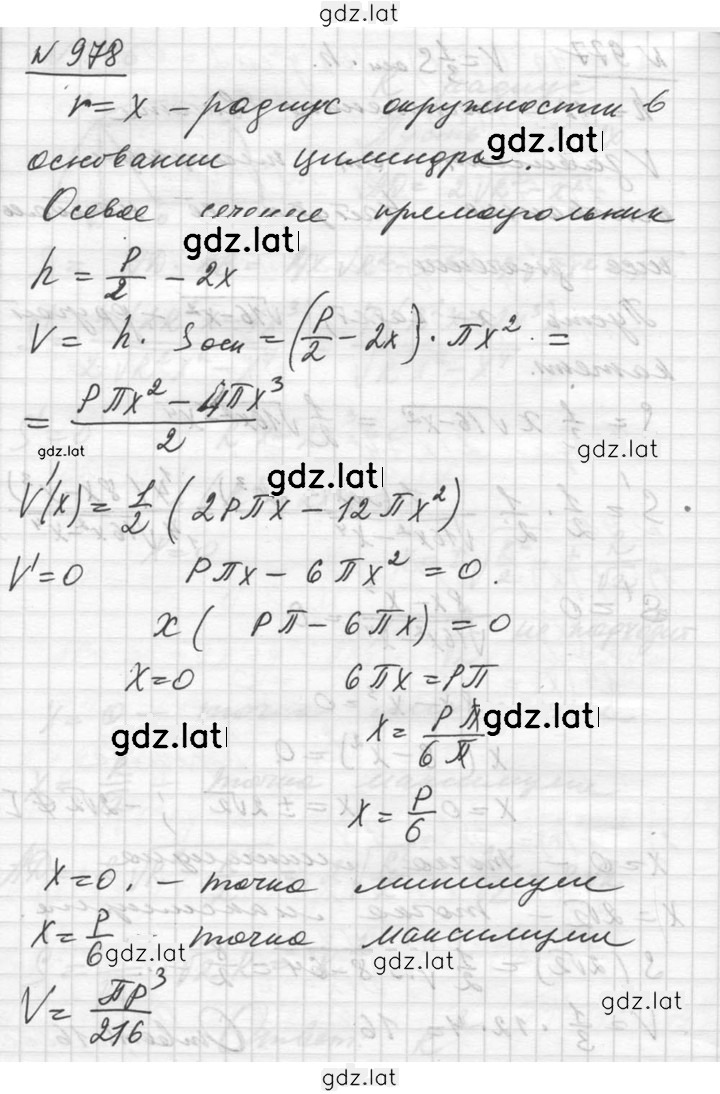 gdz.lat
N 978
r = x – радиус окружности в
основании цилиндра.
gdz.lat
Осевое сечение прямоугольник
gdz.lat
h = P/2 – 2x
V = h · Sосн = (P/2 – 2x) · πx² =
= (Pπx² – 4πx³)/2
gdz.lat gdz.lat
gdz.lat
V'(x) = 1/2 (2Pπx – 12πx²)
V' = 0 Pπx – 6πx² = 0.
x( Pπ – 6πx) = 0
x = 0 6πx = Pπ
gdz.lat gdz.lat
x = Pπ/6π
x = P/6
x = 0. – точка минимума
x = P/6 точка максимума
gdz.lat gdz.lat
V = πP³/216
gdz.lat
gdz.lat